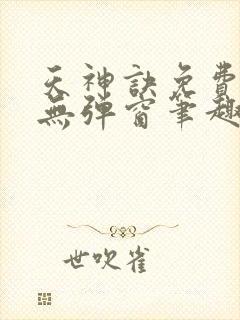 天神訣免費
無彈窗筆趣
世吹雀